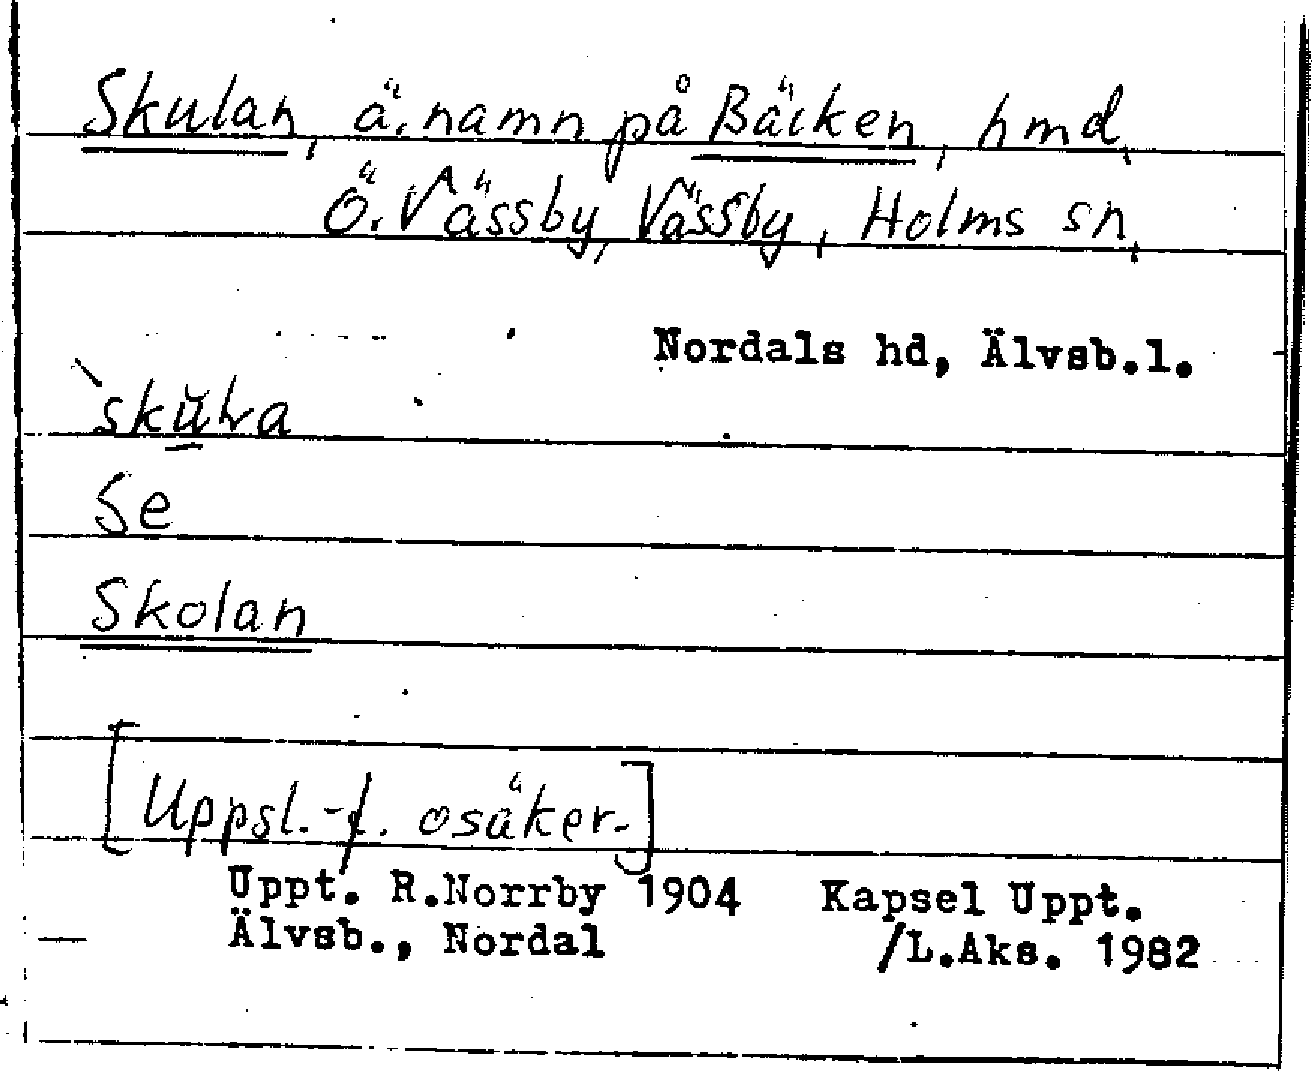 Skulan, ä. namn på Bäcken, hmd,
Ö. Vässby, Vässby, Holms sn,
Nordals hd, Älvsb.l.
Se
Skolan
[Uppsl.-f. osäker.]
Uppt. R.Norrby 1904 Kapsel Uppt.
Älvsb., Nordal /L.Aks. 1982